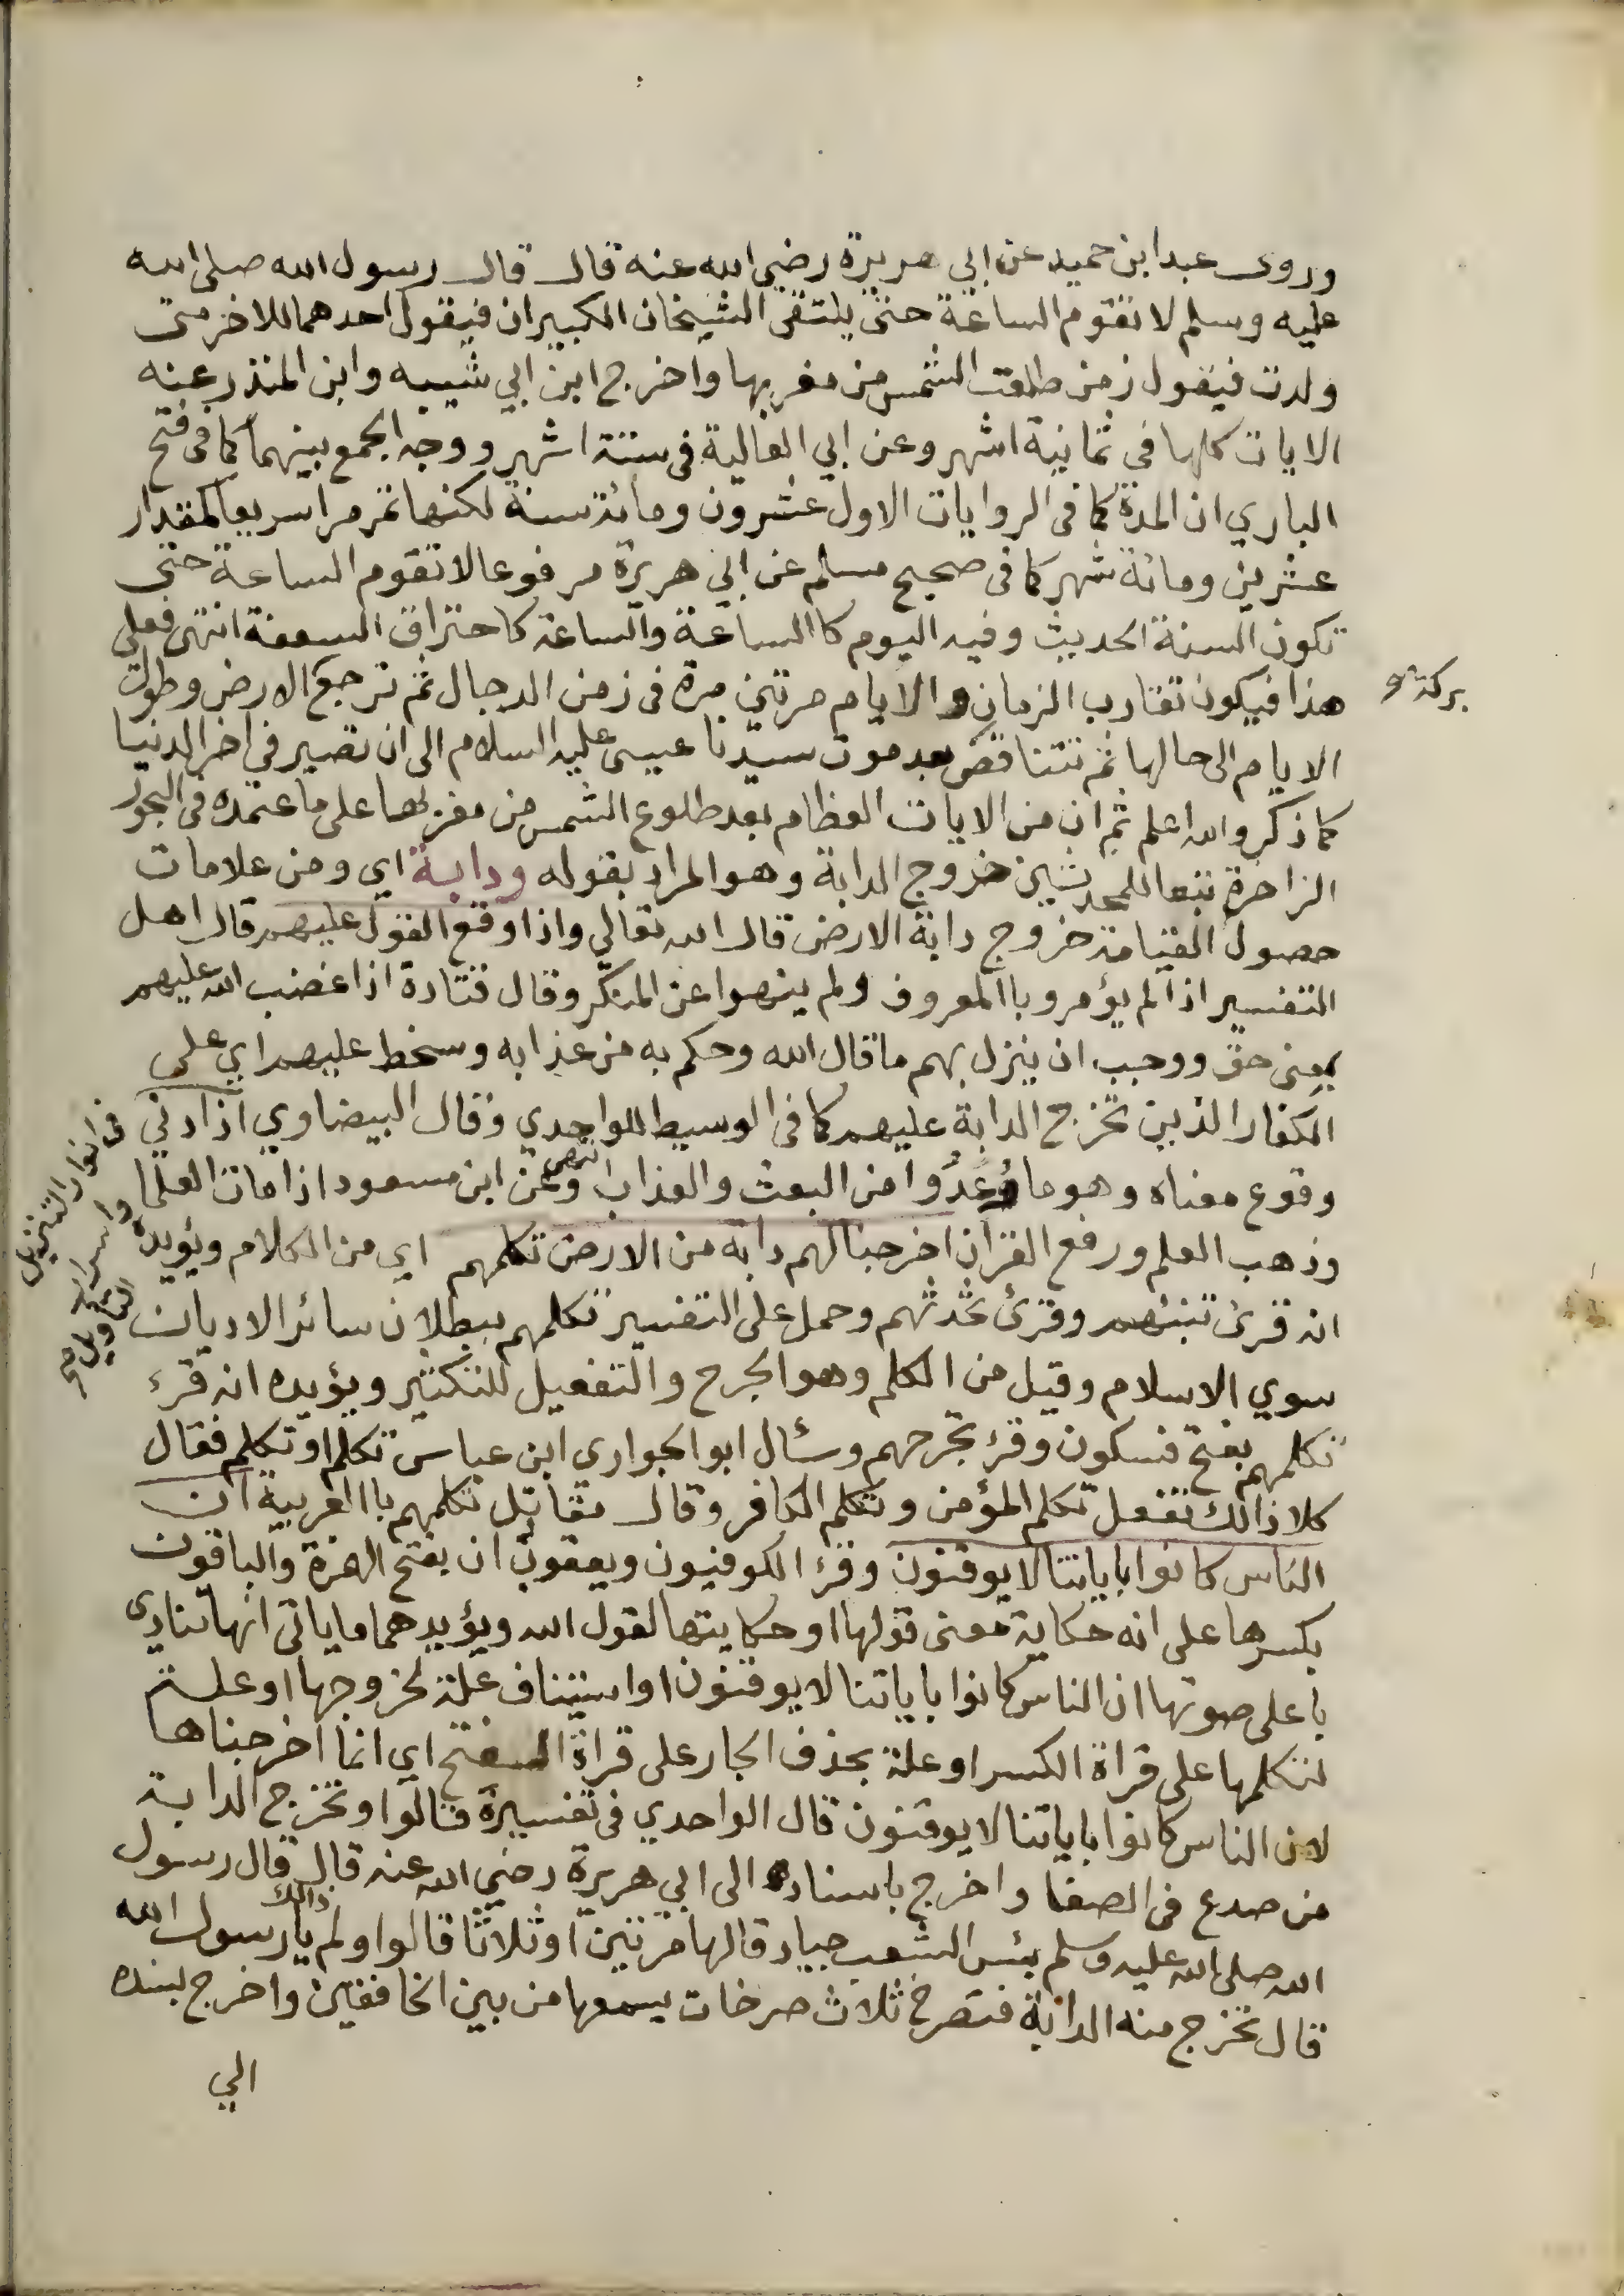 وروى عبد ابن حميد عن ابي هريرة رضي الله عنه قال قال رسول الله صلى الله
عليه وسلم لا تقوم الساعة حتى يلتقى الشيخان الكبيران فيقول احدهما للاخر متى
ولدت فيقول زمن طلعت الشمس من مغربها واخرج ابن ابي شيبه وابن المنذر عنه
الايات كلها في ثمانية اشهر وعن ابي العالية فى ستة اشهر ووجه الجمع بينهما كما فى فتح
الباري ان المدة كما فى الروايات الاول عشرون ومائة سنة لكنها تمر مرا سريعا كمقدار
عشرين ومائة شهر كما فى صحيح مسلم عن ابي هريرة مرفوعا لا تقوم الساعة حتى
تكون السنة الحديث وفيه اليوم كا الساعة والساعة كاحتراق السعفة انتهى فعلى
هذا فيكون تقارب الزمان والايام مرتين مرة فى زمن الدجال ثم ترجع الارض وطول
بركة
الايام الى حالها ثم تتناقص بعد موت سيدنا عيسى عليه السلام الى ان تصير في اخر الدنيا
كما ذكر والله اعلم ثم ان من الايات العظام بعد طلوع الشمس من مغربها على ما عتمده فى البحور
الزاخرة تبعا للمحدثين خروج الدابة وهو المراد بقوله ودابة اي ومن علامات
حصول القيامة خروج دابة الارض قال الله تعالي واذا وقع القول عليهم قال اهل
التفسير اذا لم يؤمرو با المعروف ولم ينهوا عن المنكر وقال قتادة اذا غضب الله عليهم
بمعنى حق ووجب ان ينزل بهم ما قال الله وحكم به من عذابه وسخط عليهم اي على
الكفار الذين تخرج الدابة عليهم كما فى الوسيط للواحدي وقال البيضاوي اذا دني
فى انوار التنزيل واسرار التأويل صح
وقوع معناه وهو ما وُعِدُوا من البعث والعذاب انتهى وعن ابن مسعود اذا مات العلما
وذهب العلم ورفع القرآن اخرجنا لهم دابة من الارض تكلمهم اي من الكلام ويؤيده
انه قرئ تنبئهم وقرئ تحدثهم وحمل على التفسير تكلمهم ببطلان سائر الاديان
سوي الاسلام وقيل من الكلم وهو الجرح والتفعيل للتكثير ويؤيده انه قرء
تكلمهم بفتح فسكون وقرء تجرحهم وسئال ابو الجواري ابن عباس تكلم او تكلم فقال
كلا ذالك تفعل تكلم المؤمن وتكلم الكافر وقال مقاتل تكلمهم باالعربية ان
الناس كانوا باياتنا لا يوقنون وقرء الكوفيون ويعقوب ان بفتح الهمزة والباقون
بكسرها على انه حكاية معنى قولها او حكايتها لقول الله ويؤيدهما ماياتى انها تنادي
باعلى صوتها ان الناس كانوا باياتنا لا يوقنون او استيناف علة لخروجها او علة
لتكلمها على قراة الكسر او علة بحذف الجار على قراة الفتح اي انما اخرجناها
لان الناس كانوا باياتنا لا يوقنون قال الواحدي فى تفسيره قالوا وتخرج الدابة
من صدع فى الصفا واخرج باسناده الى ابي هريرة رضي الله عنه قال قال رسول
الله صلى الله عليه وسلم بئس الشعب جياد قالها مرتين او ثلاثا قالوا ولم ذالك يا رسول الله
قال تخرج منه الدابة فتصرخ ثلاث صرخات يسمعها من بين الخافقين واخرج بسنده
الي